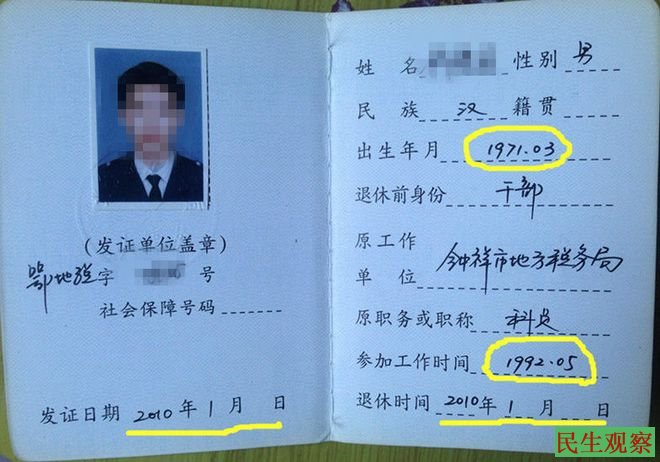 (发证单位盖章)
鄂地税字 号
社会保障号码
发证日期 2010年1月 日
姓 名 性别 男
民 族 汉 籍贯
出生年月 1971.03
退休前身份 干部
原工作
单 位 钟祥市地方税务局
原职务或职称 科员
参加工作时间 1992.05
退休时间 2010年1月 日
民生观察